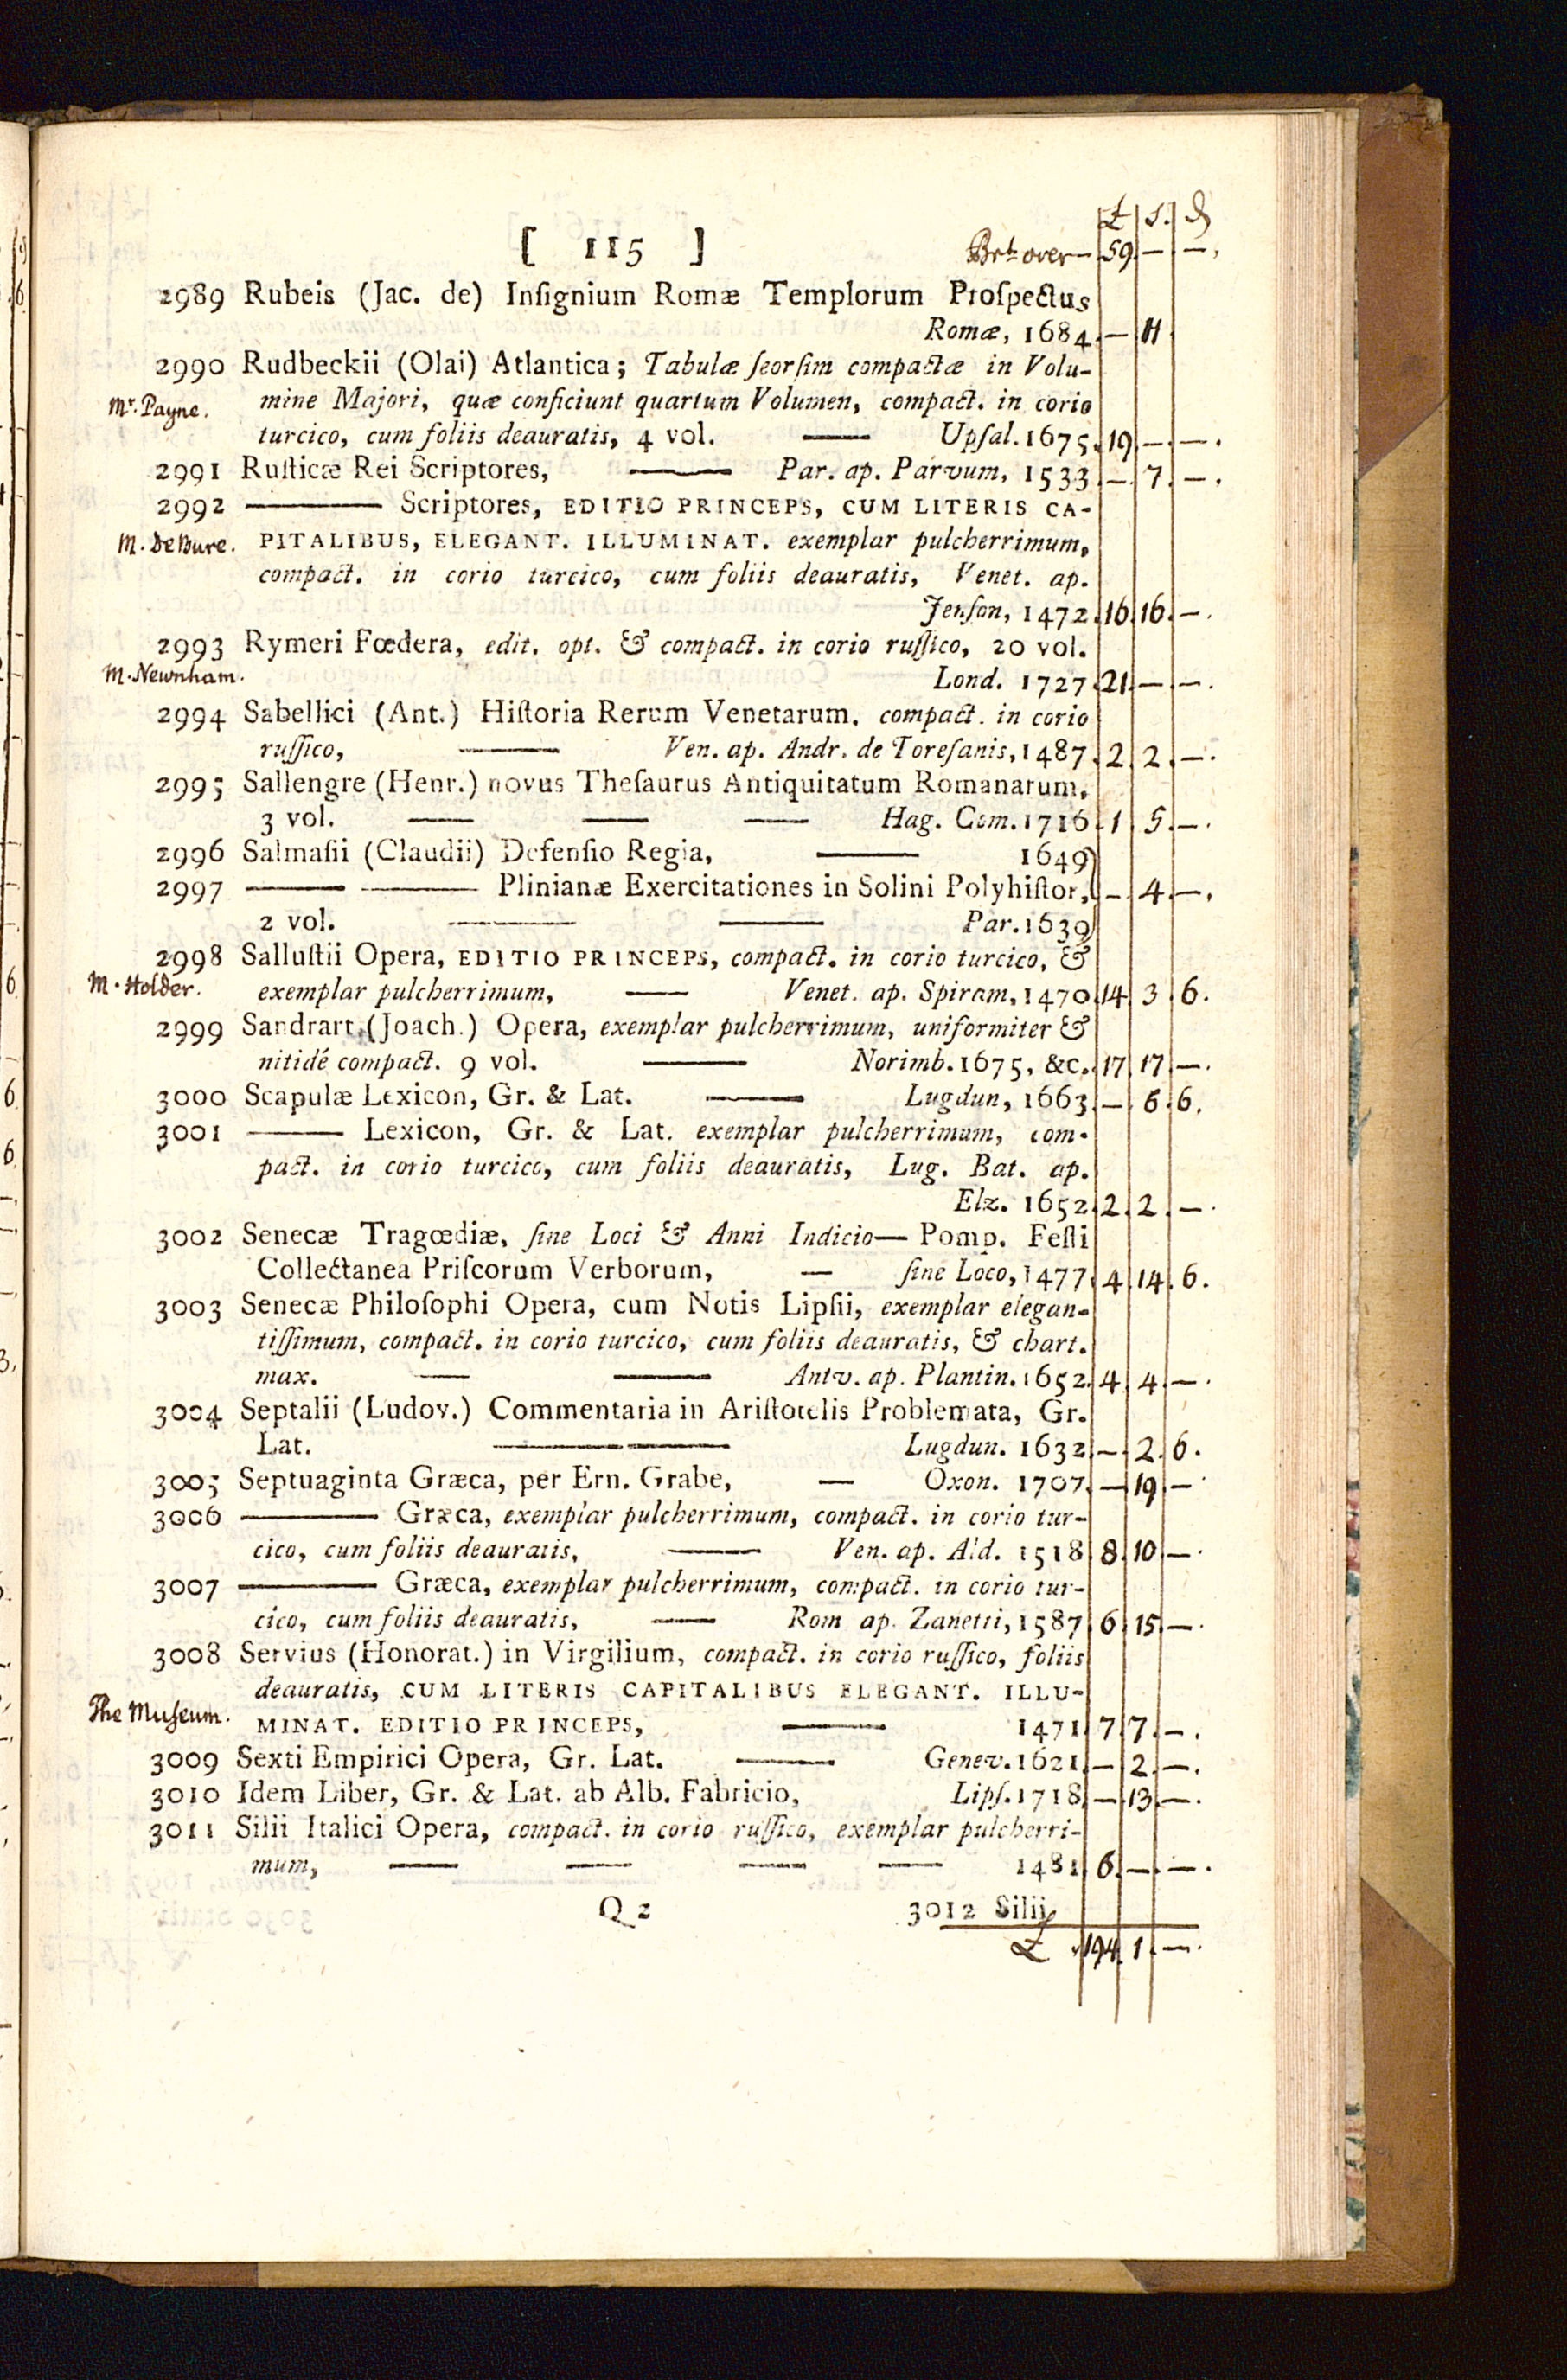 £ s. d
[ 115 ] Brt. over — 59. — —.
2989 Rubeis (Jac. de) Inſignium Romæ Templorum Proſpectus
Romæ, 1684. — 11
2990 Rudbeckii (Olai) Atlantica; Tabulæ ſeorſim compactæ in Volu-
Mr. Payne. mine Majori, quæ conficiunt quartum Volumen, compact. in corio
turcico, cum foliis deauratis, 4 vol. —— Upſal. 1675. 19. —. —.
2991 Ruſticæ Rei Scriptores, —— Par. ap. Parvum, 1533. —. 7. —.
2992 —— Scriptores, EDITIO PRINCEPS, CUM LITERIS CA-
M. De Bure. PITALIBUS, ELEGANT. ILLUMINAT. exemplar pulcherrimum,
compact. in corio turcico, cum foliis deauratis, Venet. ap.
Jenſon, 1472. 16. 16. —.
2993 Rymeri Fœdera, edit. opt. & compact. in corio ruſſico, 20 vol.
M. Newnham. Lond. 1727. 21. — —.
2994 Sabellici (Ant.) Hiſtoria Rerum Venetarum, compact. in corio
ruſſico, —— Ven. ap. Andr. de Toreſanis, 1487. 2. 2. —.
2995 Sallengre (Henr.) novus Theſaurus Antiquitatum Romanarum,
3 vol. —— —— —— Hag. Com. 1716. 1. 5. —.
2996 Salmaſii (Claudii) Defenſio Regia, —— 1649)
2997 —— —— Plinianæ Exercitationes in Solini Polyhiſtor, } — 4. —.
2 vol. —— —— Par. 1639)
2998 Salluſtii Opera, EDITIO PRINCEPS, compact. in corio turcico, &
M. Holder. exemplar pulcherrimum, —— Venet. ap. Spiram, 1470. 14. 3. 6.
2999 Sandrart (Joach.) Opera, exemplar pulcherrimum, uniformiter &
nitidé compact. 9 vol. —— Norimb. 1675, &c. 17. 17. —.
3000 Scapulæ Lexicon, Gr. & Lat. —— Lugdun, 1663. —. 6. 6.
3001 —— Lexicon, Gr. & Lat. exemplar pulcherrimum, com-
pact. in corio turcico, cum foliis deauratis, Lug. Bat. ap.
Elz. 1652. 2. 2. —.
3002 Senecæ Tragœdiæ, ſine Loci & Anni Indicio— Pomp. Feſti
Collectanea Priſcorum Verborum, — ſine Loco, 1477. 4. 14. 6.
3003 Senecæ Philoſophi Opera, cum Notis Lipſii, exemplar elegan-
tiſſimum, compact. in corio turcico, cum foliis deauratis, & chart.
max. —— —— Antv. ap. Plantin. 1652. 4. 4. —.
3004 Septalii (Ludov.) Commentaria in Ariſtotelis Problemata, Gr.
Lat. —— Lugdun. 1632. —. 2. 6.
3005 Septuaginta Græca, per Ern. Grabe, — Oxon. 1707. — 19. —.
3006 —— Græca, exemplar pulcherrimum, compact. in corio tur-
cico, cum foliis deauratis, —— Ven. ap. Ald. 1518. 8. 10. —.
3007 —— Græca, exemplar pulcherrimum, compact. in corio tur-
cico, cum foliis deauratis, —— Rom ap. Zanetti, 1587. 6. 15. —.
3008 Servius (Honorat.) in Virgilium, compact. in corio ruſſico, foliis
deauratis, CUM LITERIS CAPITALIBUS ELEGANT. ILLU-
The Muſeum. MINAT. EDITIO PRINCEPS, —— 1471. 7. 7. —.
3009 Sexti Empirici Opera, Gr. Lat. —— Genev. 1621. — 2. —.
3010 Idem Liber, Gr. & Lat. ab Alb. Fabricio, Lipſ. 1718. —. 13. —.
3011 Silii Italici Opera, compact. in corio ruſſico, exemplar pulcherri-
mum, —— —— —— —— 1481. 6. —. —.
Q 2 3012 Silii
£ 194. 1. —.